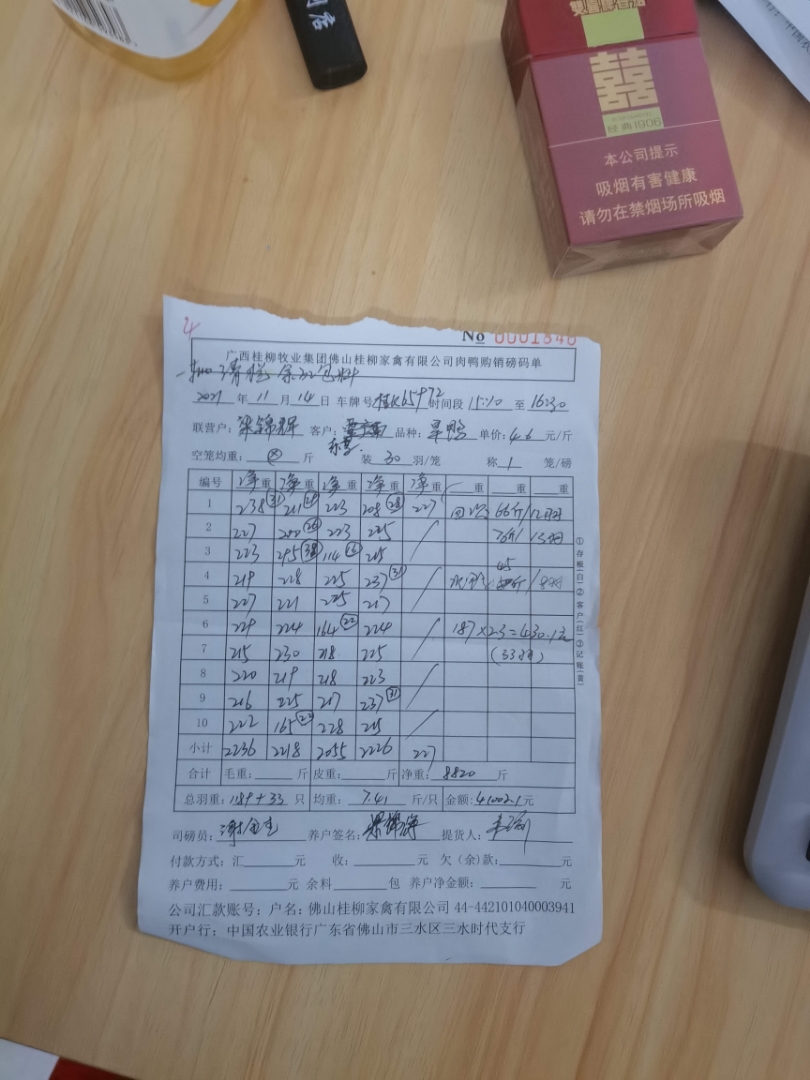 囍
经典1906
本公司提示
吸烟有害健康
请勿在禁烟场所吸烟
4
No 0001846
广西桂柳牧业集团佛山桂柳家禽有限公司肉鸭购销磅码单
清栏 余 包料
2021 年 11 月 14 日 车牌号 桂K65972 时间段 15:10 至 16:30
联营户: 梁锦辉 客户: 品种: 旱鸭 单价: 4.6 元/斤
空笼均重: ⊗ 斤 装 30 羽/笼 称 1 笼/磅
编号 净重 净重 净重 净重 净重 重 重 重
1 238 ㉛ 221 ㉙ 223 208 ㉘ 227 回 66斤/12羽
2 227 200 ㉖ 223 225 / 76斤/13羽
3 223 295 ㊳ 114 215
4 219 228 225 237 ㉛ / 45
5 227 221 225 217
6 229 224 164 ㉒ 224 / 187×2.3=430.1元
7 215 230 218 225 (33羽)
8 220 219 218 223 /
9 216 225 217 237 ㉛
10 222 165 ㉒ 228 215 /
小计 2236 2218 2055 2226 227
合计 毛重: 斤 皮重: 斤 净重: 8820 斤
总羽重: 1189+33 只 均重: 7.41 斤/只 金额: 41002.1 元
司磅员: 养户签名: 提货人:
付款方式: 汇 元 收: 元 欠(余)款: 元
养户费用: 元 余料 包 养户净金额: 元
公司汇款账号: 户名: 佛山桂柳家禽有限公司 44-442101040003941
开户行: 中国农业银行广东省佛山市三水区三水时代支行
①存根(白)②客户(红)③记账(黄)